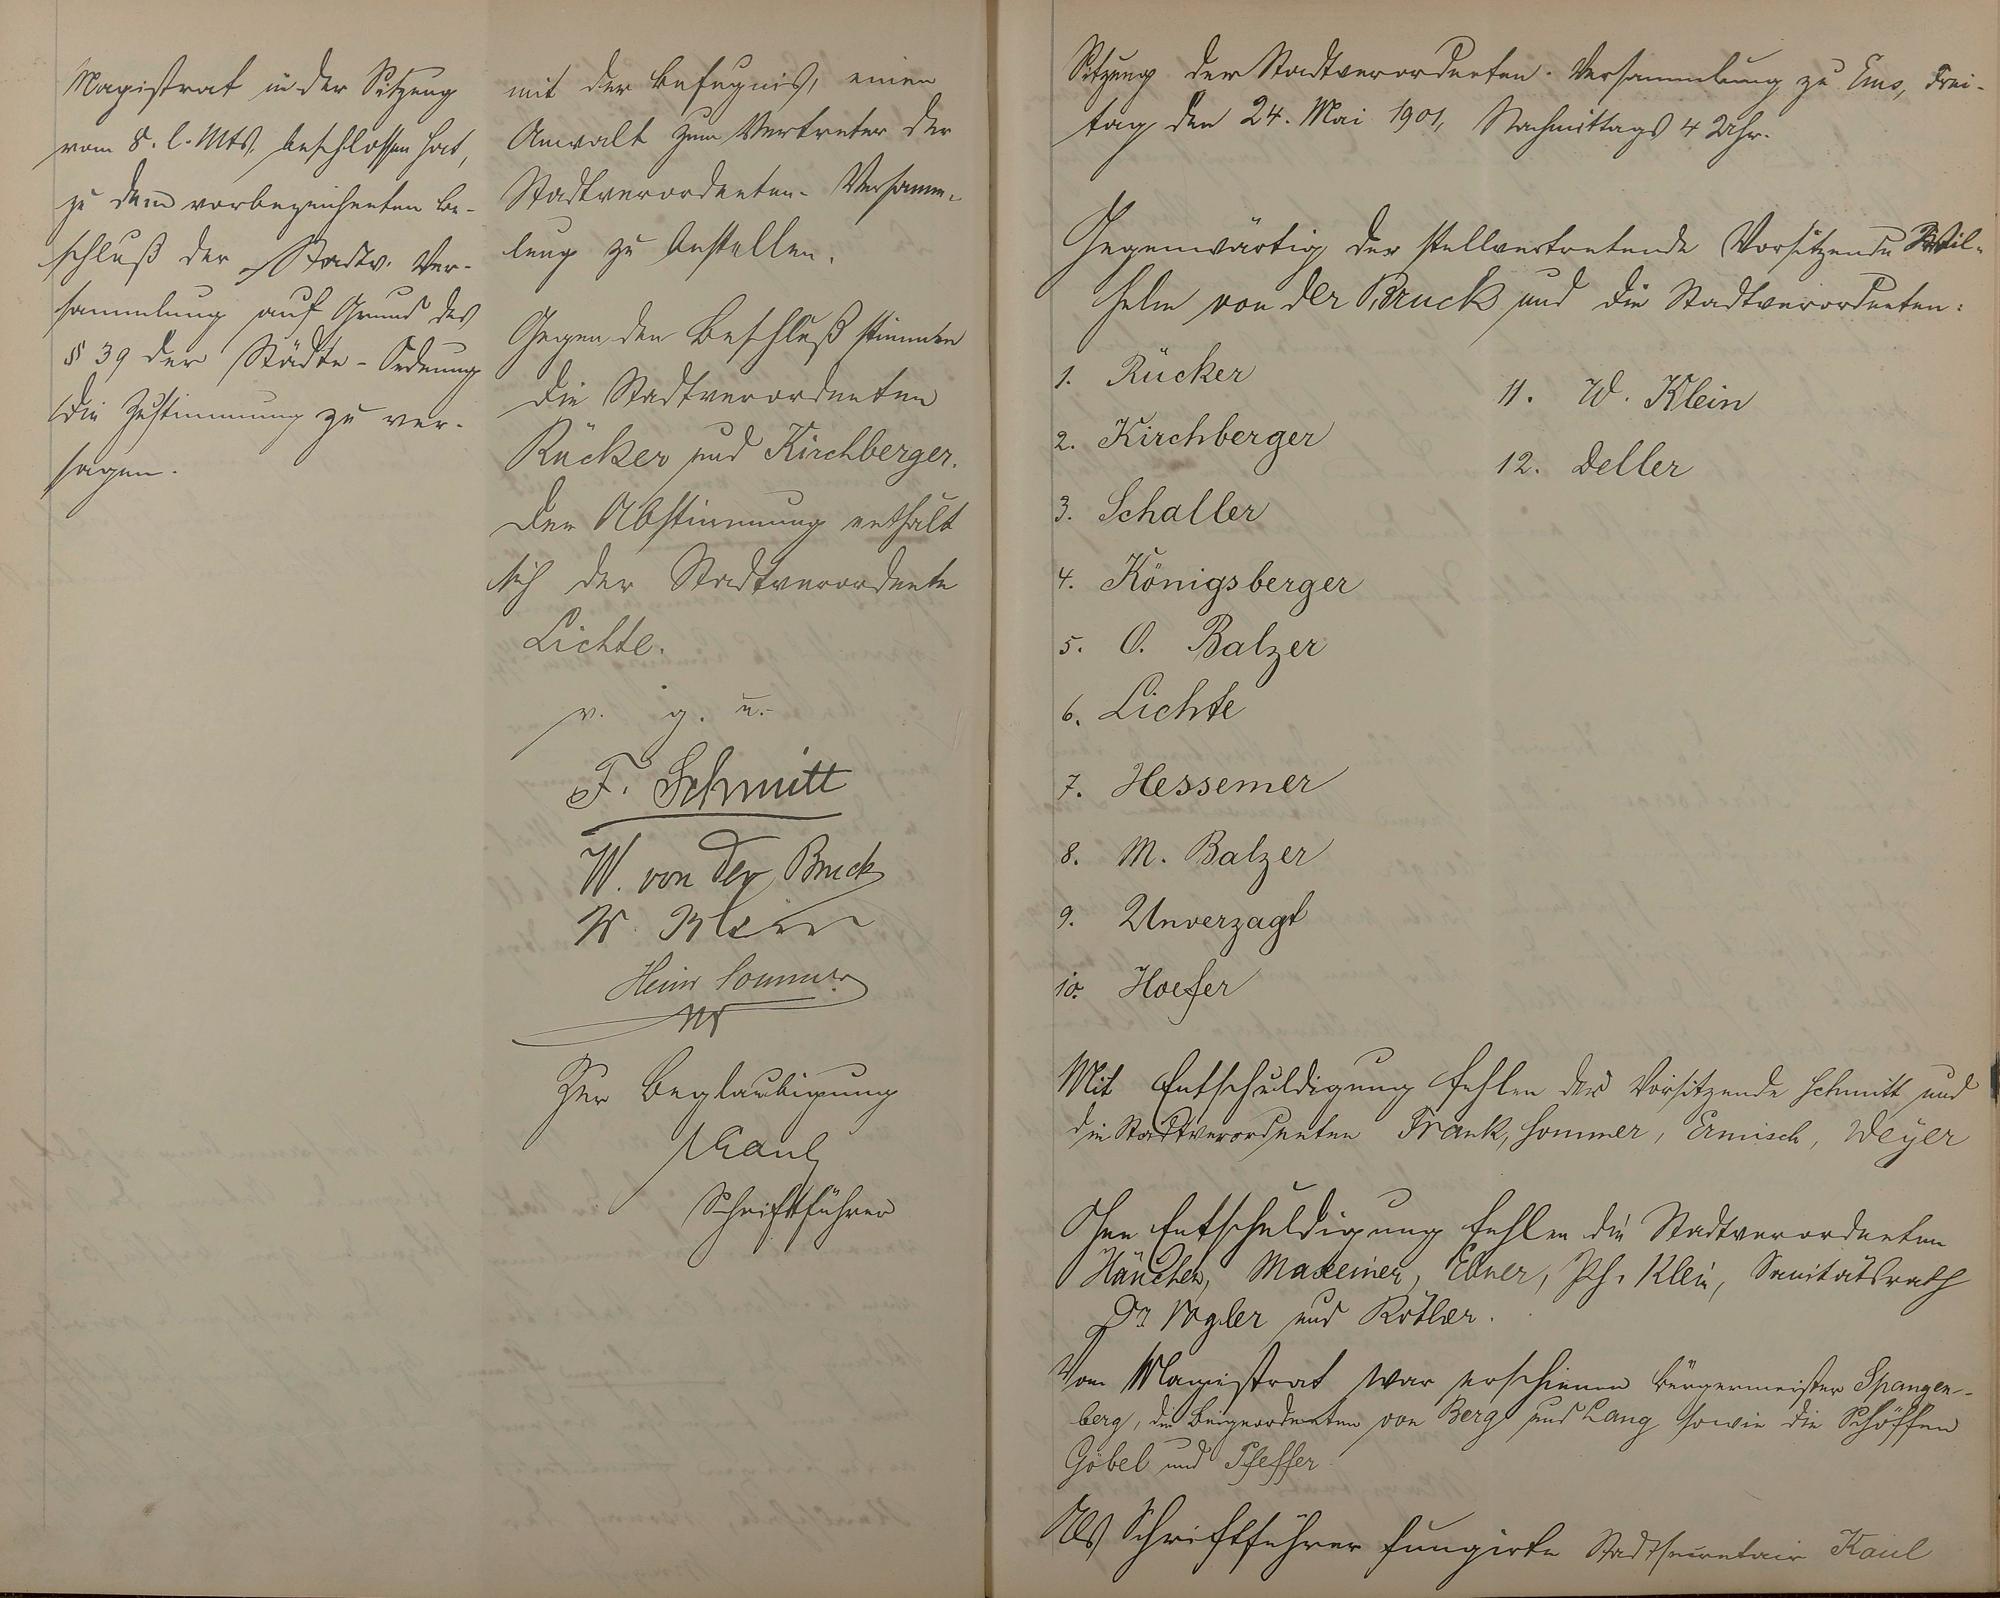 Magistrat in der Sitzung
vom 8. l. Mts. beschlossen hat,
zu dem vorbezeichneten Be-
schluß der Stadtv. Ver-
sammlung auf Grund des
§ 39 der Städte-Ordnung
die Zustimmung zu ver-
sagen.
mit der Befugnis, einen
Anwalt zum Vertreter der
Stadtverordneten-Versamm-
lung zu bestellen.
Gegen den Beschluß stimmten
die Stadtverordneten
Rücker und Kirchberger.
Der Abstimmung enthält
sich der Stadtverordnete
Lichte.
v. g. u.
F. Schmitt
W. von der Bruck
W. Klein
Heinr Sommer
Zur Beglaubigung
Kaul
Schriftführer
Sitzung der Stadtverordneten-Versammlung zu Ems, Frei-
tag den 24. Mai 1901, Nachmittags 4 Uhr.
Gegenwärtig der stellvertretende Vorsitzende Wil-
helm von der Bruck und die Stadtverordneten:
1. Rücker
2. Kirchberger
3. Schaller
4. Königsberger
5. O. Balzer
6. Lichte
7. Hessemer
8. M. Balzer
9. Unverzagt
10. Hoefer
11. W. Klein
12. Deller
Mit Entschuldigung fehlen der Vorsitzende Schmitt und
die Stadtverordneten Frank, Sommer, Ermisch, Weyer
Ohne Entschuldigung fehlen die Stadtverordneten
Maxeiner, Ebner, Ph. Klein, Sanitätsrath
Dr. Vogler und
Vom Magistrat war erschienen Bürgermeister Spangen-
berg, die Beigeordneten von Berg und Lang sowie die Schöffen
Göbel und Pfeffer
Als Schriftführer fungirte Stadtsecretair Kaul